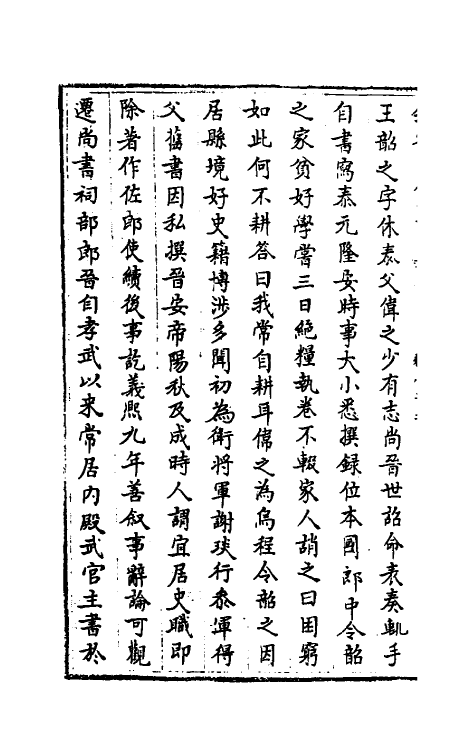 王韶之字休泰父偉之少有志尚晉世詔命表奏輒手
自書寫泰元隆安時事大小悉撰録位本國郎中令韶
之家貧好學嘗三日絶糧執卷不輟家人誚之曰困窮
如此何不耕答曰我常自耕耳偉之為烏程令韶之因
居縣境好史籍博涉多聞初為衛將軍謝琰行參軍得
父舊書因私撰晉安帝陽秋及成時人謂宜居史職即
除著作佐郎使續後事訖義熙九年善叙事辭論可觀
遷尚書祠部郎晉自孝武以来常居内殿武官主書於